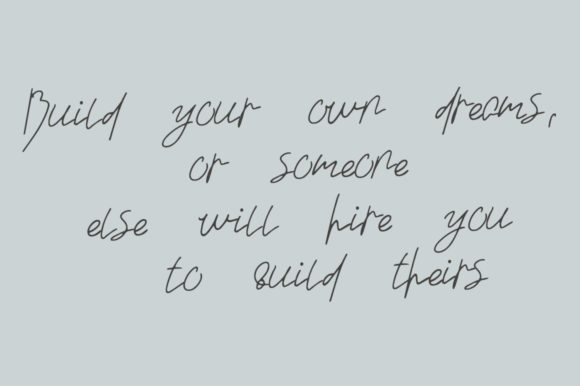 Build your own dreams,
or someone
else will hire you
to build theirs